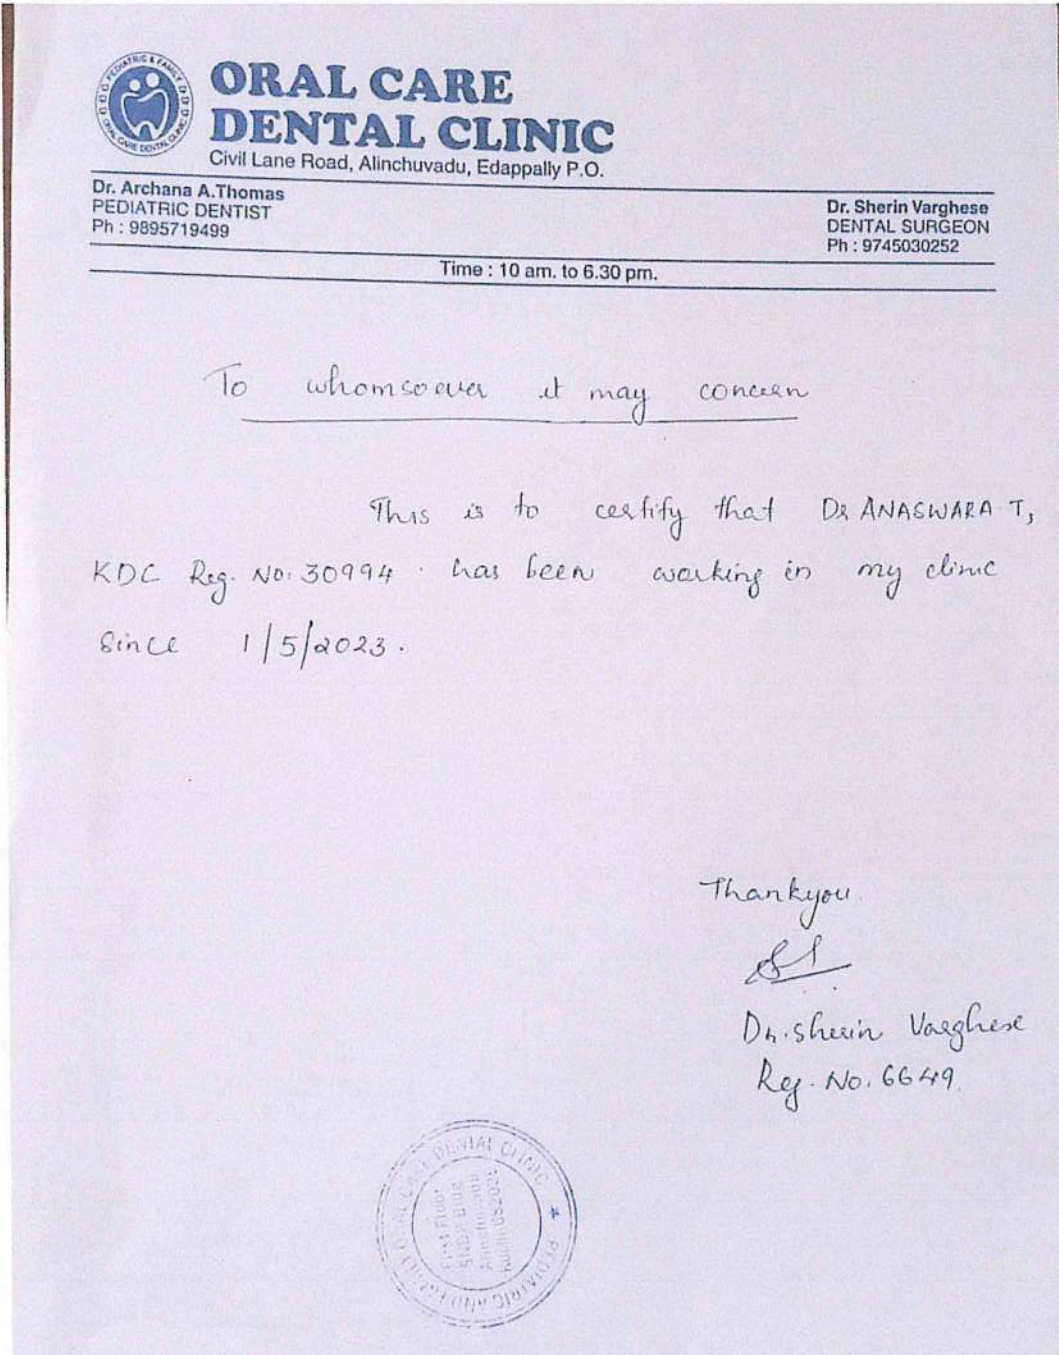 PEDIATRIC & FAMILY
ORAL CARE DENTAL CLINIC
ORAL CARE
DENTAL CLINIC
Civil Lane Road, Alinchuvadu, Edappally P.O.
Dr. Archana A.Thomas
PEDIATRIC DENTIST
Ph : 9895719499
Dr. Sherin Varghese
DENTAL SURGEON
Ph : 9745030252
Time : 10 am. to 6.30 pm.
To whomsoever it may concern
This is to certify that Dr ANASWARA T,
KDC Reg. No: 30994 has been working in my clinic
Since 1/5/2023.
Thankyou
Dr. Sherin Varghese
Reg. No. 6649.
PEDIATRIC AND FAMILY ORAL CARE DENTAL CLINIC
First Floor
SNDP Bldg